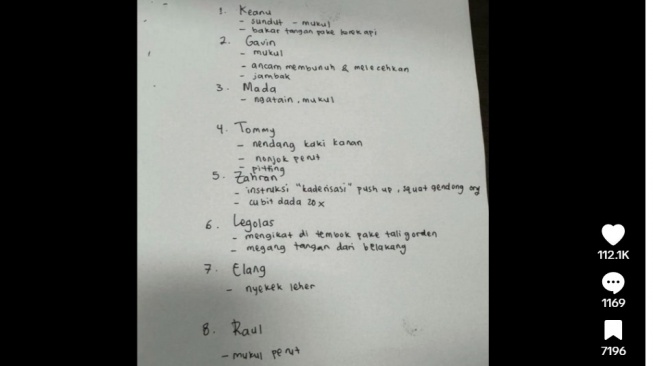 1. Keanu
- sundut - mukul
- bakar tangan pake korek api
2. Gavin
- mukul
- ancam membunuh & melecehkan
- jambak
3. Mada
- ngatain, mukul
4. Tommy
- nendang kaki kanan
- nonjok perut
- pitting
5. Zahran
- instruksi "kaderisasi" push up, squat gendong org
- cubit dada 20x
6. Legolas
- mengikat di tembok pake tali gorden
- megang tangan dari belakang
7. Elang
- nyekek leher
8. Raul
- mukul perut
112.1K
1169
7196